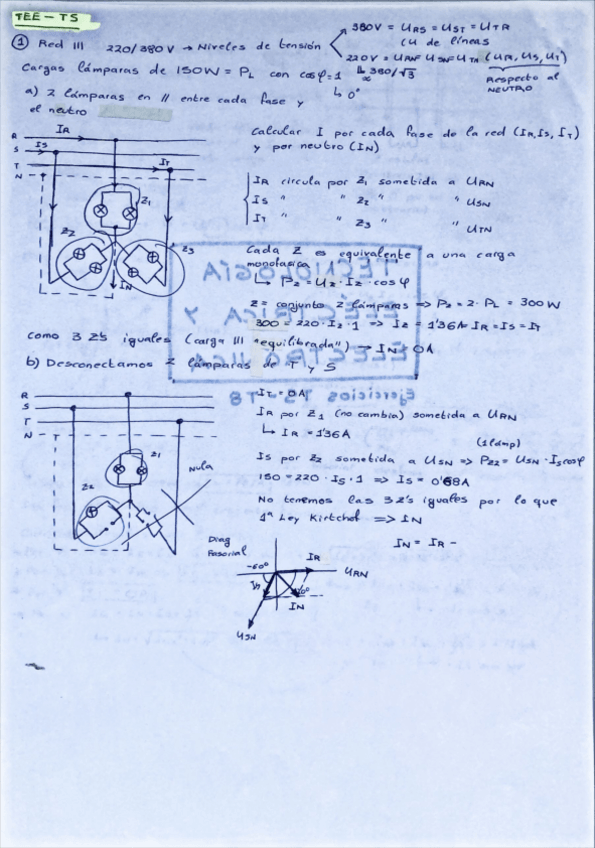 TEE - TS
① Red III 220/380V → Niveles de tensión
380V = URS = UST = UTR
(U de líneas
220V = URN = USN = UTN (UR, US, UT)
380/√3
Respecto al
NEUTRO
Cargas lámparas de 150W = PL con cosφ=1
↳ 0°
a) 2 lámparas en // entre cada fase y
el neutro
Calcular I por cada fase de la red (IR, IS, IT)
y por neutro (IN)
R
S
T
N
IR
IS
IT
Z1
Z2
Z3
IN
IR circula por Z1 sometida a URN
IS " " Z2 " " USN
IT " " Z3 " " UTN
Cada Z es equivalente a una carga
monofásica
↳ PZ = UZ · IZ · cosφ
Z = conjunto 2 lámparas ⇒ PZ = 2 · PL = 300W
300 = 220 · IZ · 1 ⇒ IZ = 1'36A IR = IS = IT
Como 3 Z's iguales (carga III "equilibrada") → IN = 0A
TECNOLOGÍA
ELÉCTRICA Y
ELECTRÓNICA
Ejercicios TS-T8
b) Desconectamos lámparas de T y S
R
S
T
N
Z1
Z2
Nula
IT = 0A
IR por Z1 (no cambia) sometida a URN
↳ IR = 1'36A
(1 lámp)
IS por Z2 sometida a USN ⇒ PZ2 = USN · IS cosφ
150 = 220 · IS · 1 ⇒ IS = 0'68A
No tenemos las 3 Z's iguales por lo que
1ª Ley Kirtchof ⇒ IN
Diag
Fasorial
IN = IR -
-60°
IR
URN
IN
USN